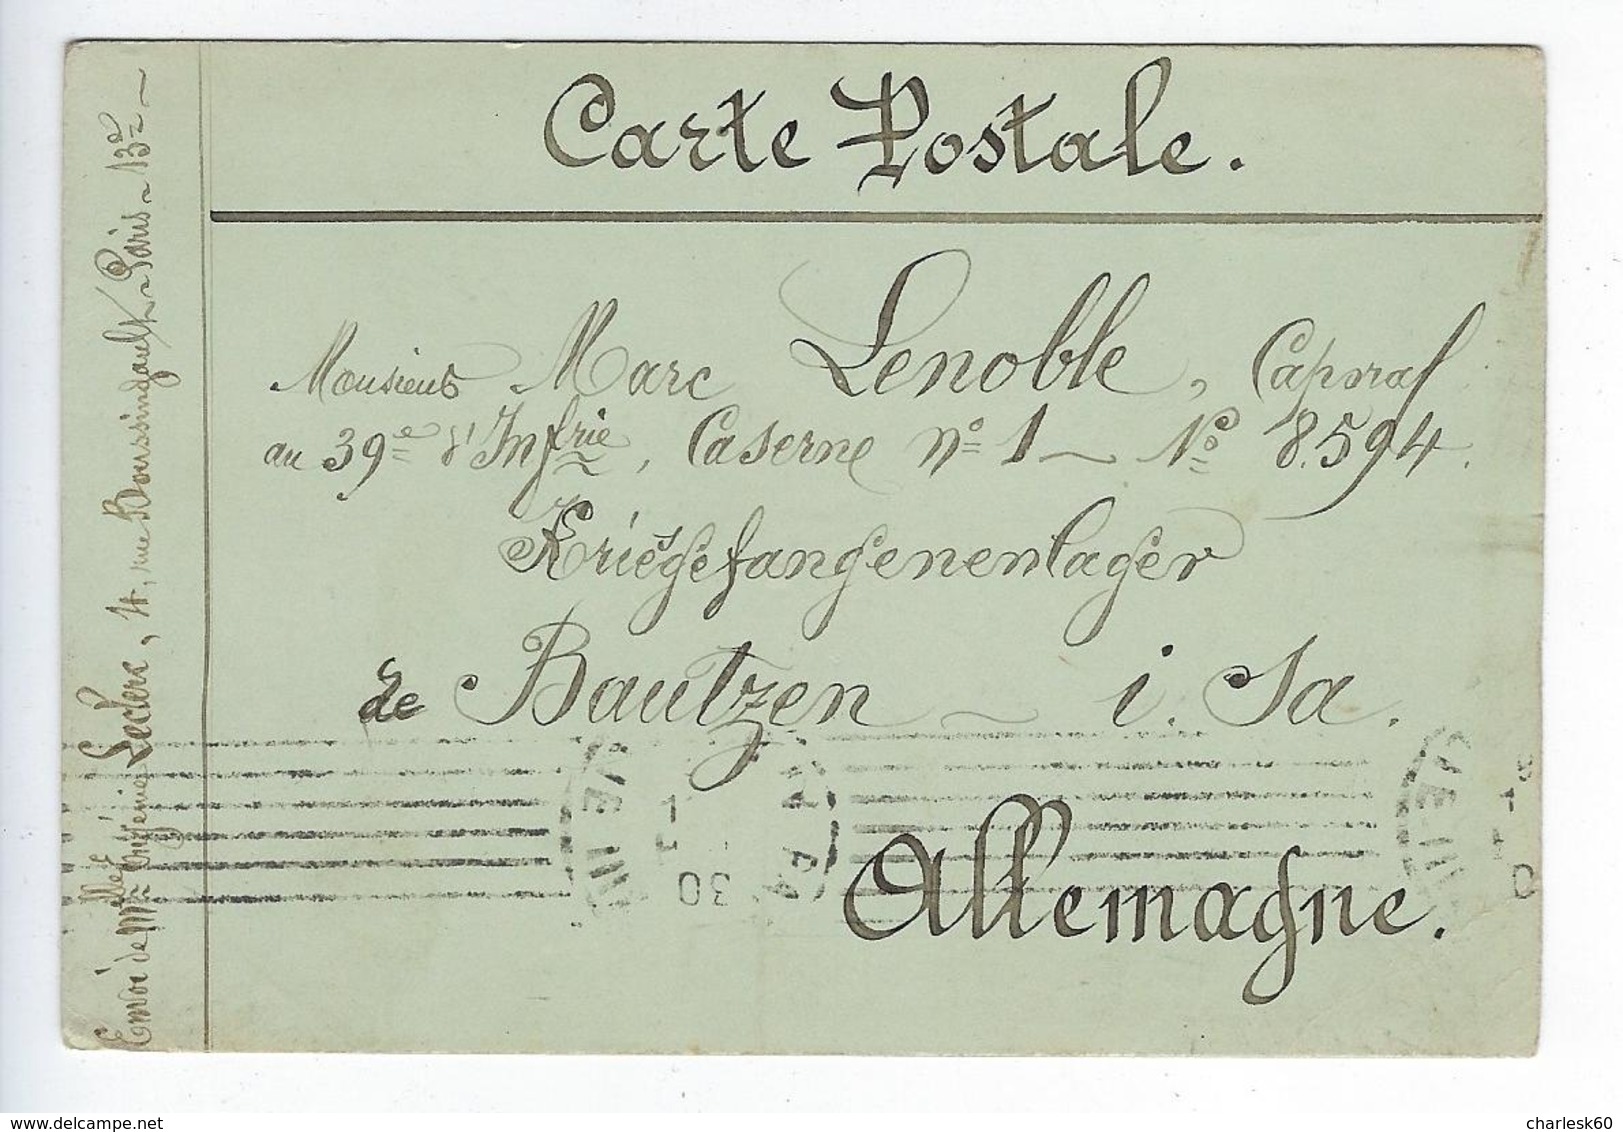 Carte Postale.
Monsieur Marc Lenoble, Caporal
au 39e d'Infrie, Caserne no 1 — No 8.594.
Kriegsgefangenenlager
de Bautzen — i. Sa.
Allemagne.
Envoi de Melle Eugénie Leclerc, 4, rue Boussingault — Paris — 13e —
30
charlesk60